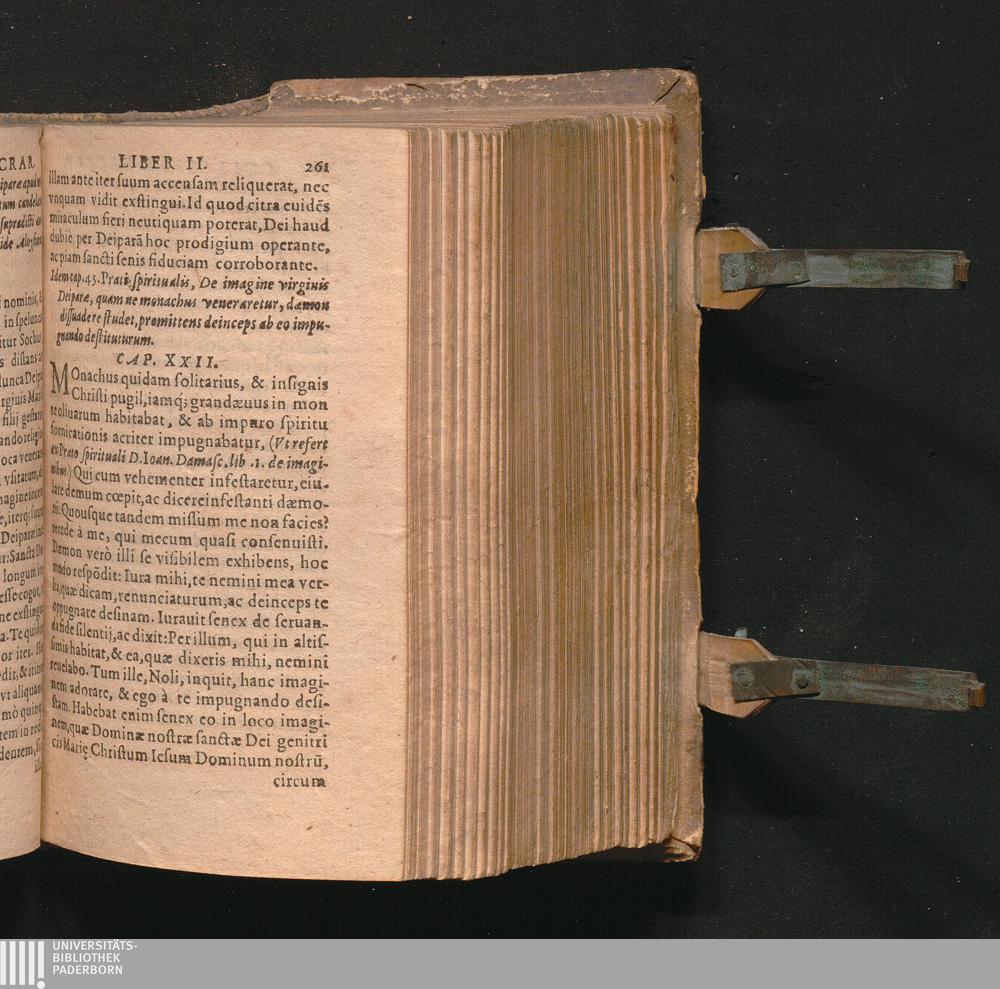 CRAR.
LIBER II. 261
illam ante iter suum accensam reliquerat, nec
vnquam vidit exstingui. Id quod citra euidēs
miraculum fieri neutiquam poterat, Dei haud
dubiè per Deiparā hoc prodigium operante,
ac piam sancti senis fiduciam corroborante.
Idem cap. 45. Prati spiritualis, De imagine virginis
Deiparæ, quam ne monachus veneraretur, dæmon
dissuadere studet, promittens deinceps ab eo impu-
gnando destituturum.
CAP. XXII.
Monachus quidam solitarius, & insignis
Christi pugil, iamq; grandæuus in mon
te oliuarum habitabat, & ab impuro spiritu
fornicationis acriter impugnabatur, (Vt refert
ex Prato spirituali D. Ioan. Damasc. lib .1. de imagi-
nibus) Qui cum vehementer infestaretur, eiu-
lare demum cœpit, ac dicere infestanti dæmo-
ni: Quousque tandem missum me non facies?
recede à me, qui mecum quasi consenuisti.
Dæmon verò illi se visibilem exhibens, hoc
modo respōdit: Iura mihi, te nemini mea ver-
ba, quæ dicam, renunciaturum, ac deinceps te
oppugnare desinam. Iurauit senex de seruan-
da fide silentij, ac dixit: Per illum, qui in altis-
simis habitat, & ea, quæ dixeris mihi, nemini
reuelabo. Tum ille, Noli, inquit, hanc imagi-
nem adorare, & ego à te impugnando desi-
stam. Habebat enim senex eo in loco imagi-
nem, quæ Dominæ nostræ sanctæ Dei genitri
cis Marię Christum Iesum Dominum nostrū,
circum
UNIVERSITÄTS-
BIBLIOTHEK
PADERBORN